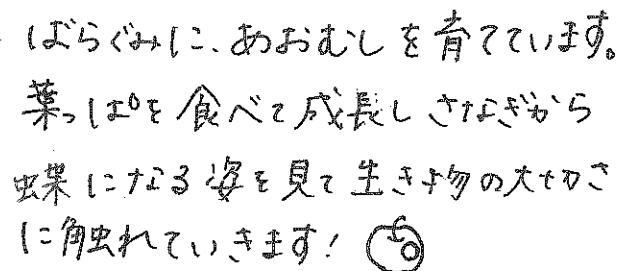 ばらぐみに、あおむしを育てています。
葉っぱを食べて成長しさなぎから
蝶になる姿を見て生き物の大切さ
に触れていきます!